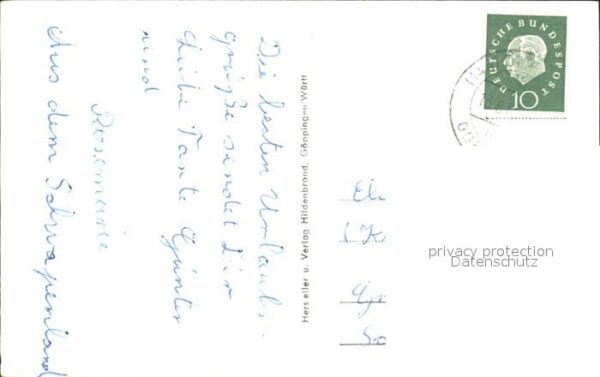 Die besten Urlaubs-
grüße sendet Dir
Liebe Tante Günter
und
Rosemarie
Aus dem Schwapenland
Hersteller u. Verlag Hildenbrand, Göppingen/Württ
DEUTSCHE BUNDESPOST
10
privacy protection
Datenschutz